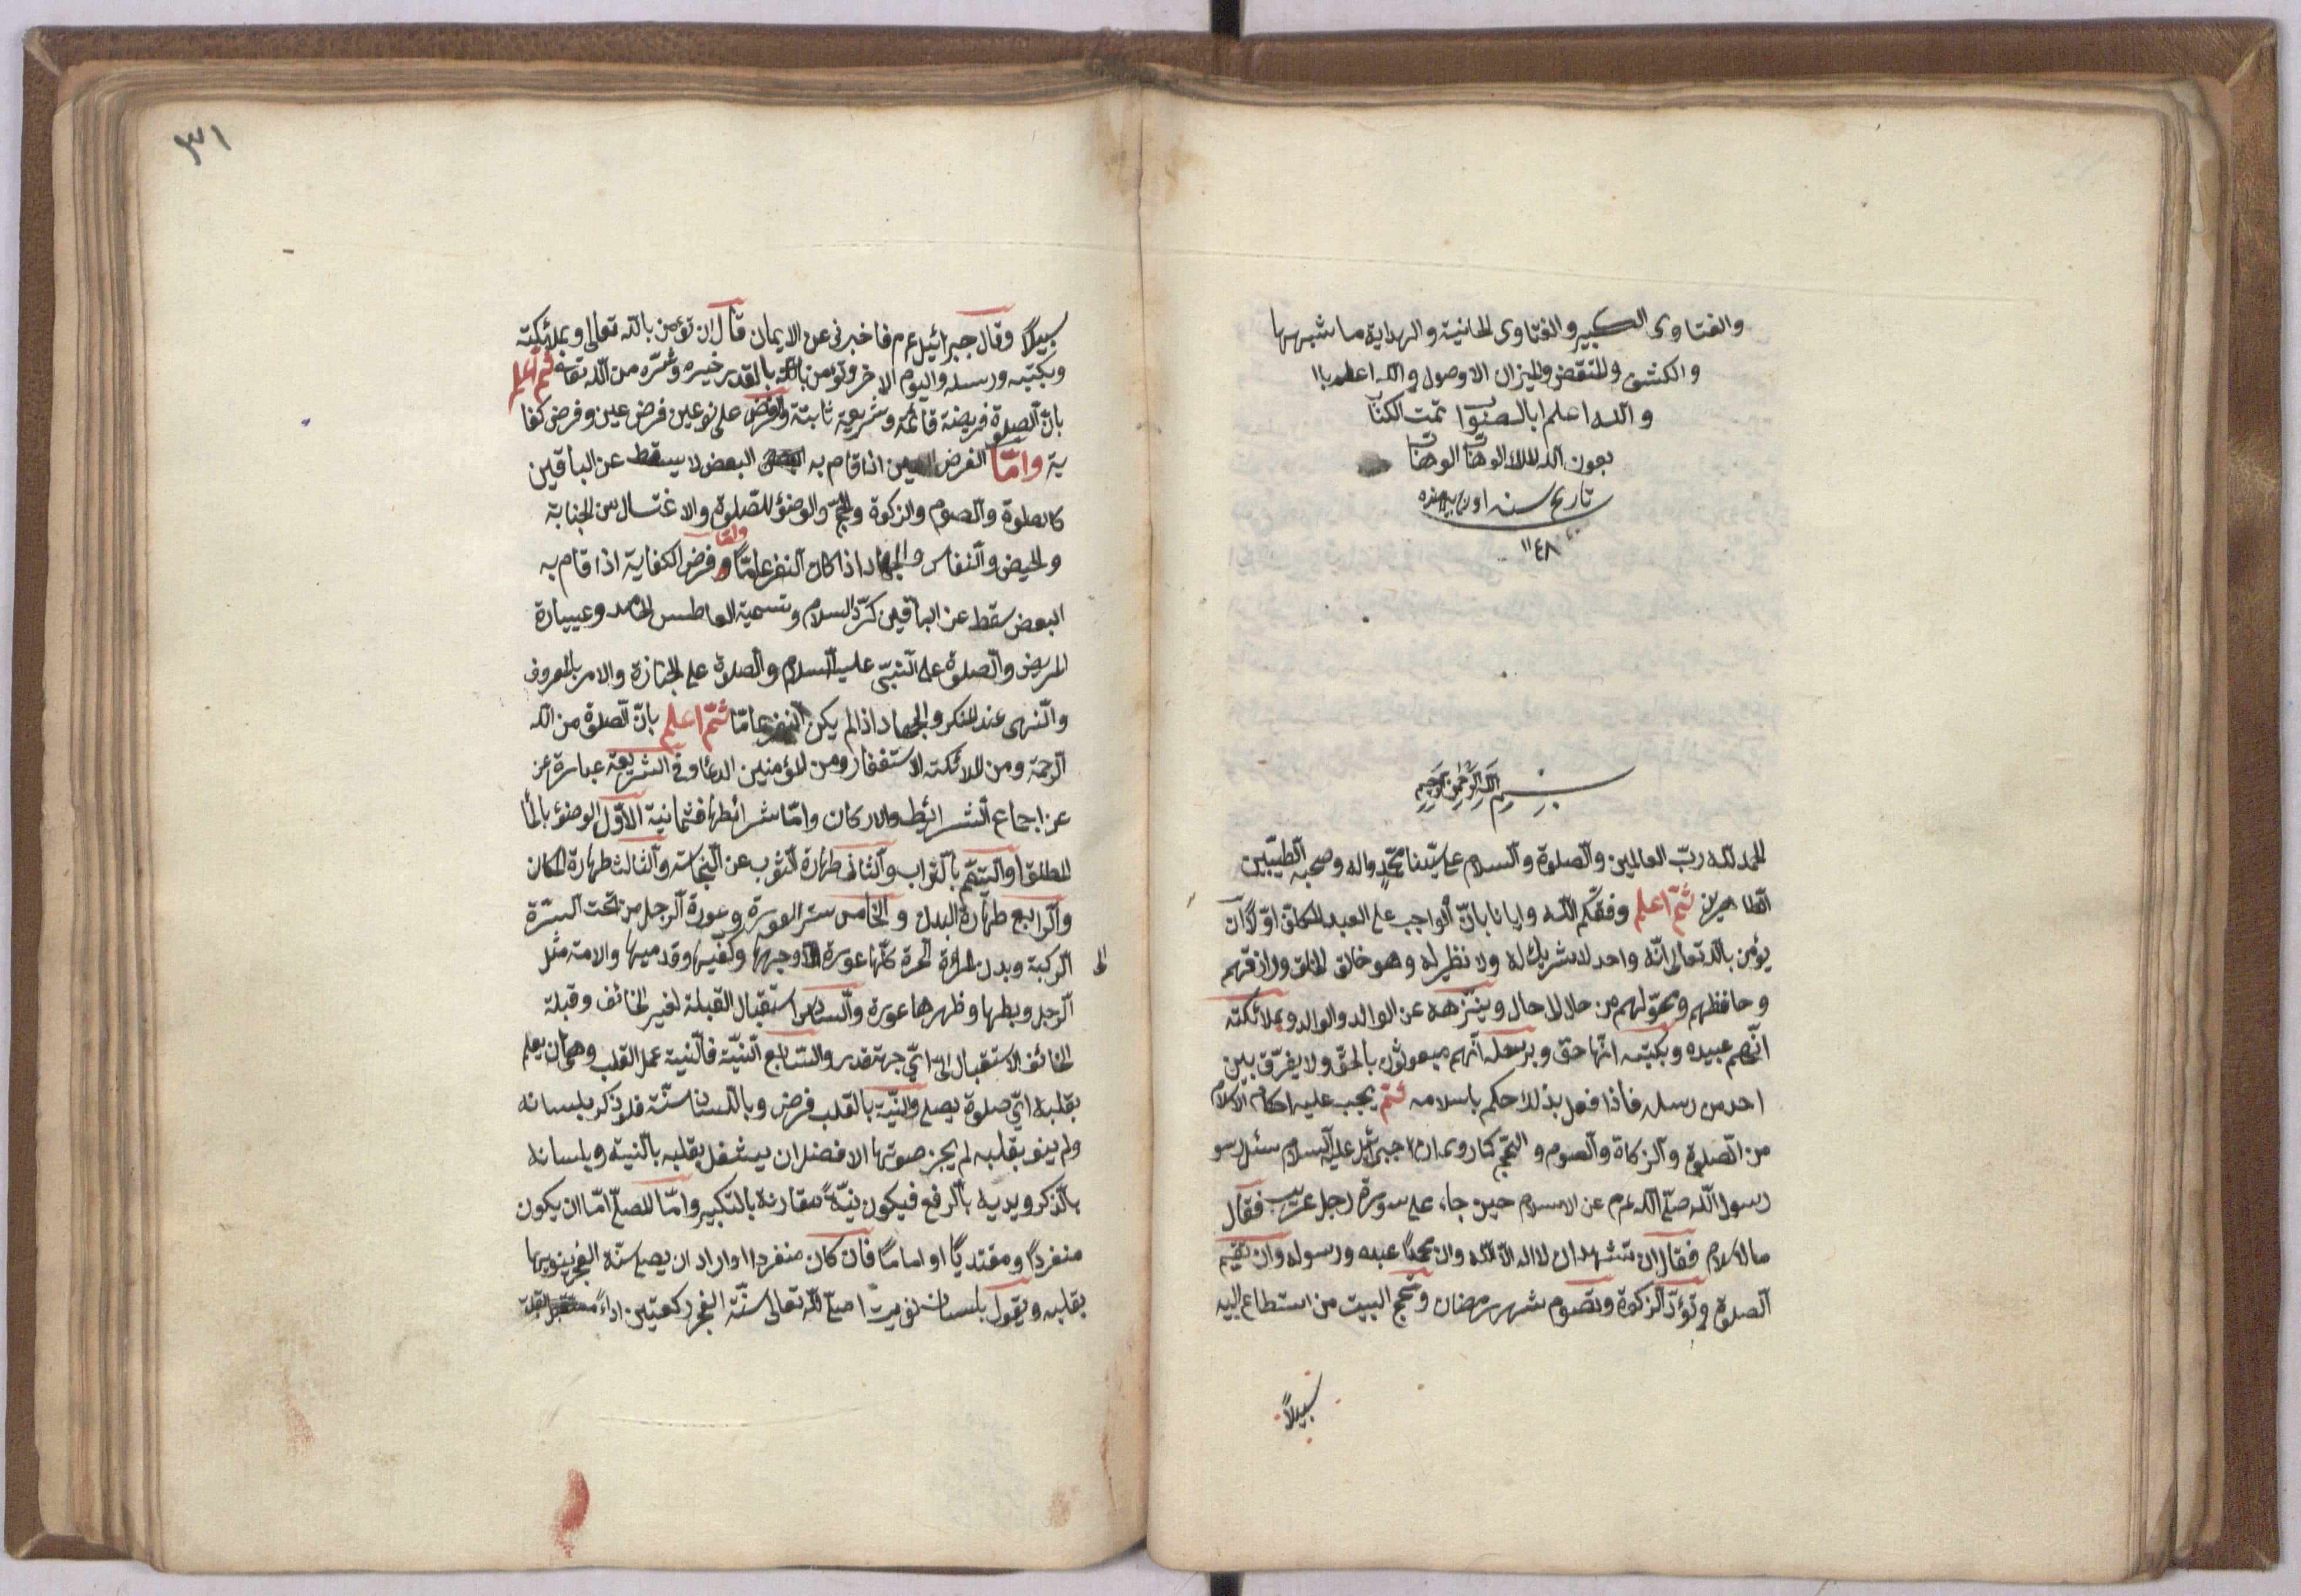 والفتاوى الكبير والفتاوى الخانية والهداية ما شبهها
والكشف والمتقض والميزان الاوصول والله اعلم باا
والله اعلم ابالصنوا ب تمت الكتاب
بعون الله الوهاب الوهاب
تاريخ سنه
١١٤٨
بسم الله الرحمن الرحيم
الحمد لله رب العالمين والصلوة والسلام على سيدنا محمد واله وصحبه الطيّبين
الطاهرين ثمّ اعلم وفقكم الله وايانا بانّ الواجب على العبد المكلف اوّلاً ان
يؤمن بالله تعالى انّه واحد لا شريك له ولا نظير له وهو خالق الخلق ورازقهم
وحافظهم ومحوّلهم من حال الا حال وينزهه عن الوالد والوالد وبملائكته
انّهم عبيده وبكتبه انّها حق وبرسله انّهم مبعوثون بالحق ولا يفرّق بين
احد من رسله فاذا فعل بذلك حكم باسلامه ثمّ يجب عليه احكام الاسلام
من الصلوة والزكاة والصوم والحج كما روى ان جبرائيل عليه السلام سئل رسو
رسول الله صلّى الله عم عن الاسلام حين جاء على سورة رجل عربب فقال
ما الاسلام فقال ان تشهد ان لا اله الا الله وان محمداً عبده ورسوله وان تقيم
الصلوة وتؤدّ الزكوة وتصوم شهر رمضان وتحج البيت من استطاع اليه
سبيلاً
٣١
سبيلاً وقال جبرائيل عم فاخبرنى عن الايمان قال ان تؤمن بالله تعالى وبملائكته
وبكتبه ورسله واليوم الاخر وتؤمن بالقدر خيره وشرّه من الله تعا ثم اعلم
بانّ الصلوة فريضة قائمة وشريعة ثابتة والفرض على نوعين فرض عين وفرض كفا
ية وامّا الفرض العين اذا قام به البعض لا يسقط عن الباقين
كالصلوة والصوم والزكوة والحجّ والوضؤ للصّلوة والاغتسال من الجنابة
والحيض والنفاس والجهاد اذا كان النفر عامّاً وامّا فرض الكفاية اذا قام به
البعض سقط عن الباقين كردّ السلام وتسمية العاطس الحامد وعيبادة
المريض والصلوة على النبيّ عليه السلام والصلاة على الجنازة والامر بالمعروف
والنهى عند المنكر والجهاد اذا لم يكن النفر عامّا ثمّ اعلم بانّ الصلوة من الله
الرحمة ومن الملائكته الاستغفار ومن المؤمنين الدعاء وفى الشريعة عبارة عن
عن اجماع الشرائط والاركان وامّا شرائطها فثمانية الاوّل الوضؤ بالما
المطلق او التيمّم بالتراب والثانى طهارة الثوب عن النجاسة والثالث طهارة المكان
والرابع طهارة البدن والخامس ستر العورة وعورة الرجل من تحت السرّة
الى الركبة وبدن المراة الحرة كلّها عورة الا وجهها وكفّيها وقدميها والامة مثل
الرجل وبطنها وظهرها عورة والسادس استقبال القبلة لغير الخائف وقبلة
الخائف الاستقبال الى ايّ جهة قدر والسابع النيّة فالنية عمل القلب وهى ان يعلم
بقلبه ايّ صلوة يصلى والنيّة بالقلب فرض وباللسان سنّة فلو ذكر بلسانه
ولم ينو بقلبه لم يجز صوتها الافضل ان يشغل بقلبه بالنية وبلسانه
بالذكر ويديه بالرفع فيكون نيّةً مقارنة بالتكبير وامّا المصلّ امّا ان يكون
منفرداً ومقتدياً او اماماً فان كان منفردا واراد ان يصلى سنّة الفجر ينويها
بقلبه ويقول بلسان نويت اصلّى لله تعالى سنّة الفجر ركعتين اداءً مستقبل القبلة